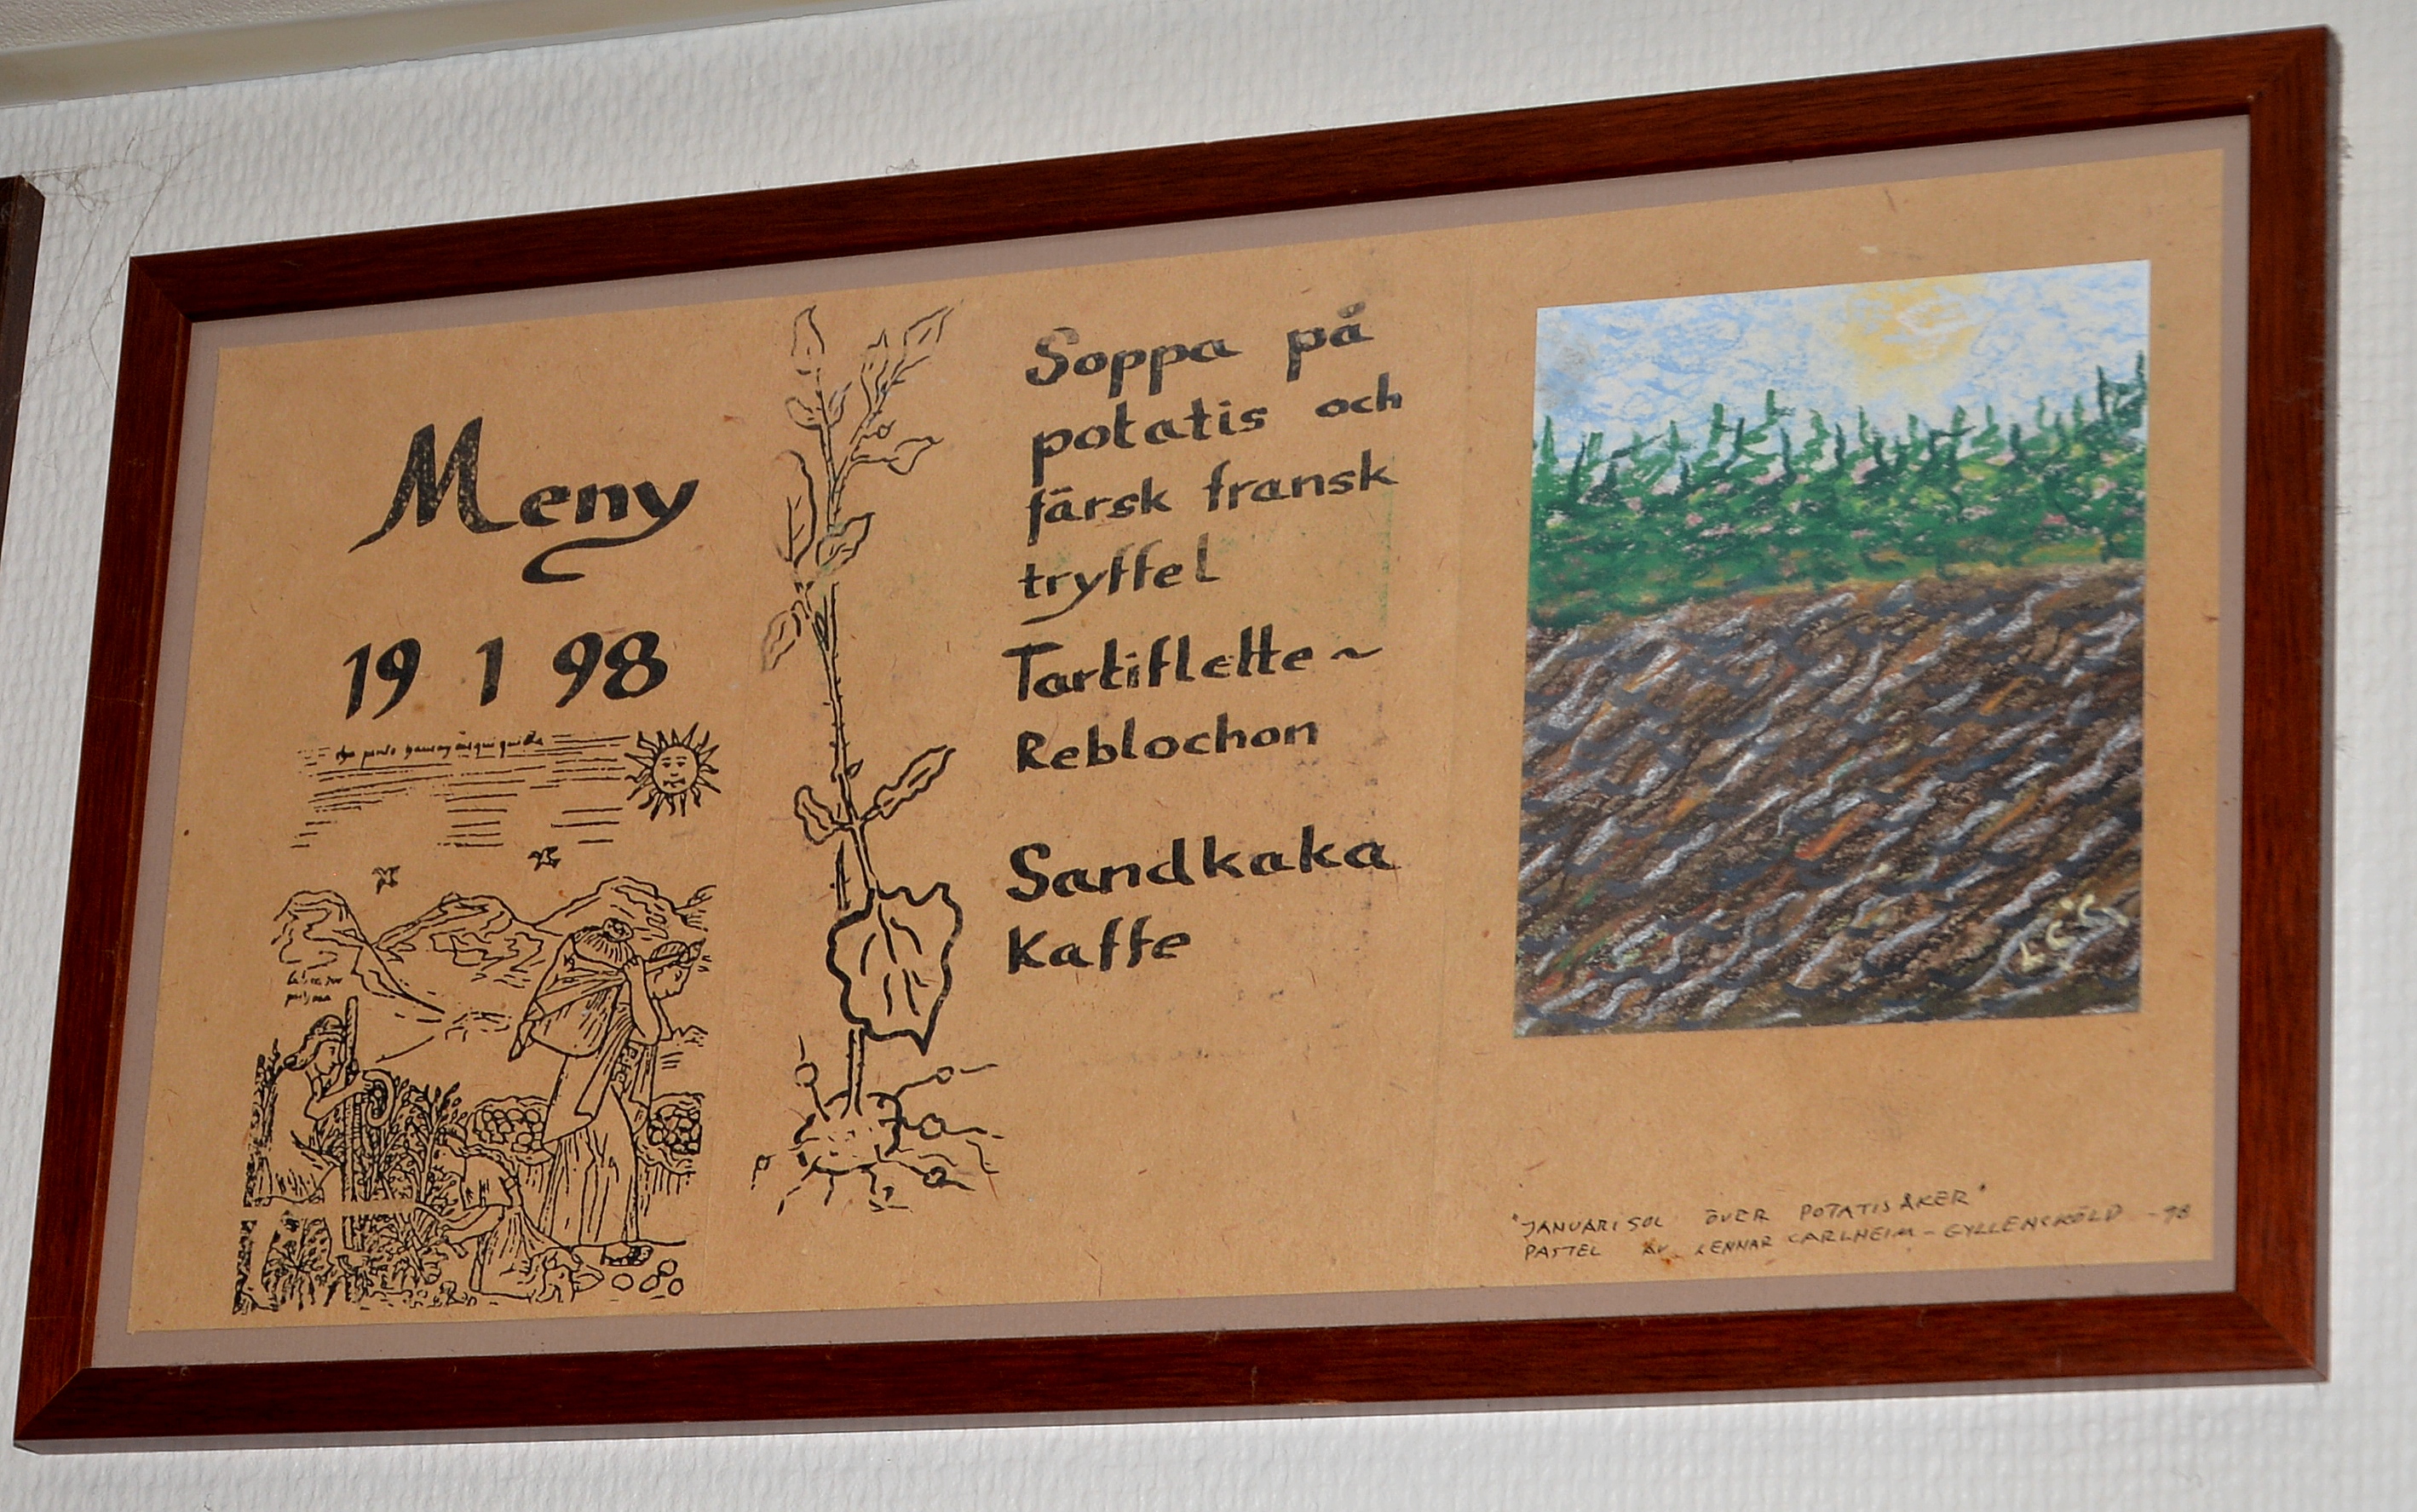 Meny
19 1 98
Soppa på
potatis och
färsk fransk
tryffel
Tartiflette~
Reblochon
Sandkaka
Kaffe
LCG
"JANUARISOL ÖVER POTATISÅKER"
PASTEL AV LENNAR CARLHEIM-GYLLENSKÖLD -98